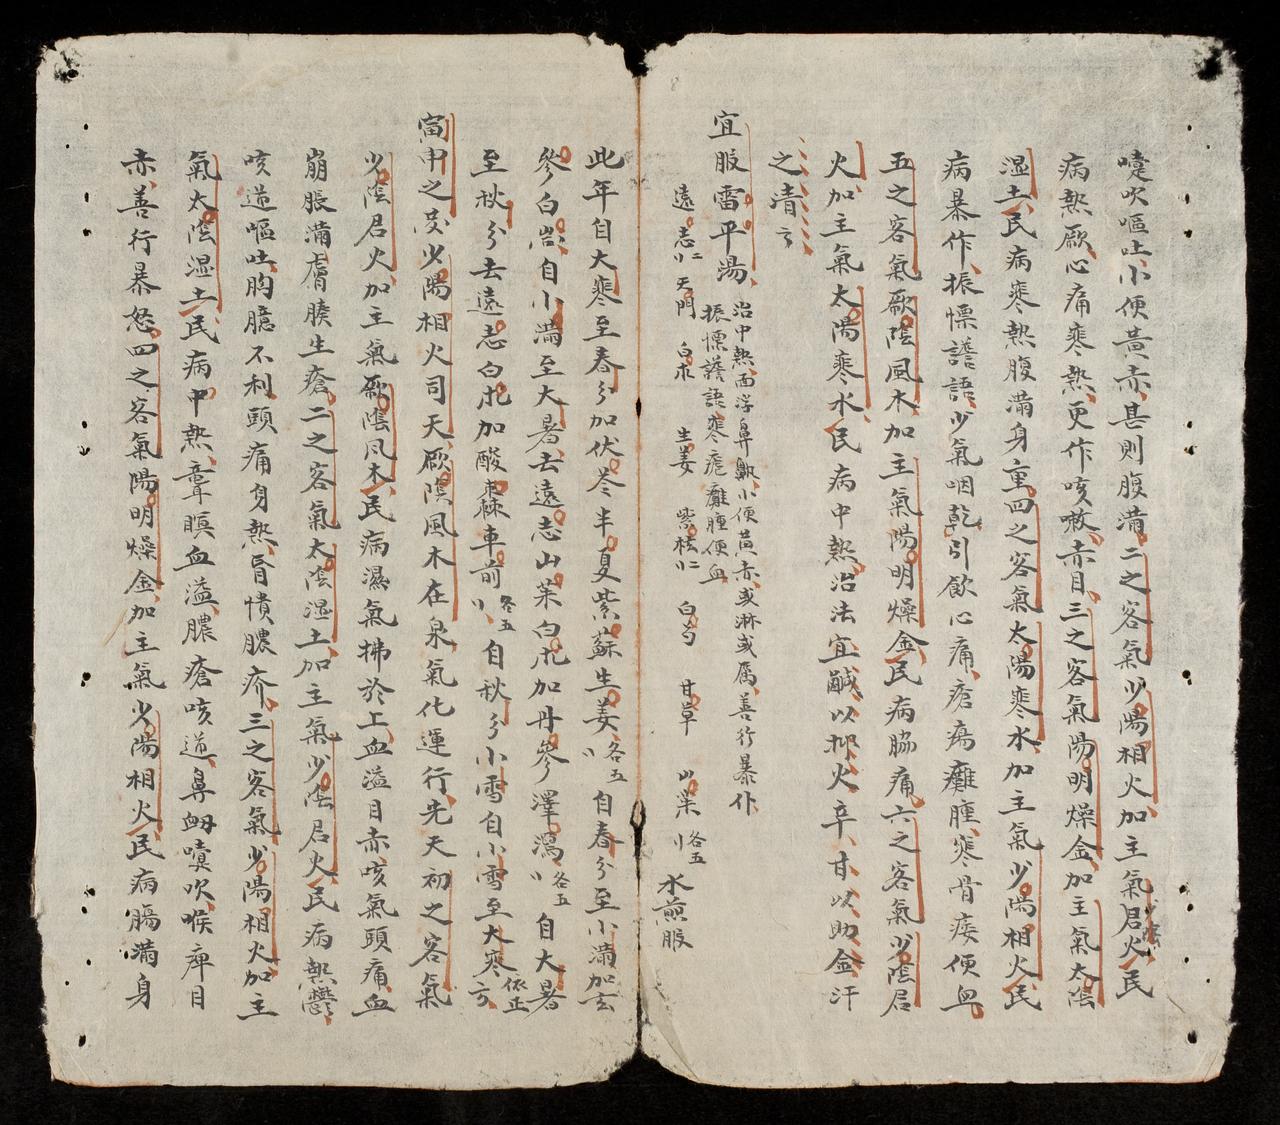 嚏吹嘔吐小便黃赤甚則腹滿二之客氣少陽相火加主氣君火民
少陰
病熱厥心痛寒熱更作咳喘赤目三之客氣陽明燥金加主氣太陰
湿土民病寒熱腹滿身重四之客氣太陽寒水加主氣少陽相火民
病暴作振慄譫語少氣咽乾引飲心痛瘡瘍癰腫寒骨痿便血
五之客氣厥陰風木加主氣陽明燥金民病脇痛六之客氣少陰君
火加主氣太陽寒水民病中熱治法宜鹹以抑火辛甘以助金汗
之清之
宜服雷平湯
治中熱面浮鼻鼽小便黃赤或淋或属善行暴仆
振慄譫語寒瘧癰腫便血
遠志 天門 白朮 生姜 紫桂 白芍 甘草 山茱 各五 水煎服
此年自大寒至春分加伏苓半夏紫蘇生姜各五自春分至小滿加玄
參白芷自小滿至大暑去遠志山茱白朮加丹參澤瀉各五自大暑
至秋分去遠志白朮加酸棗車前各五自秋分小雪自小雪至大寒依正方
寅申之歲少陽相火司天厥陰風木在泉氣化運行先天初之客氣
少陰君火加主氣厥陰風木民病濕氣拂於上血溢目赤咳氣頭痛血
崩脹滿膚腠生瘡二之客氣太陰湿土加主氣少陰君火民病熱鬱
咳逆嘔吐胸臆不利頭痛身熱昏憒膿疥三之客氣少陽相火加主
氣太陰湿土民病中熱聾瞑血溢膿瘡咳逆鼻衂嚏吹喉痺目
赤善行暴怒四之客氣陽明燥金加主氣少陽相火民病腸滿身